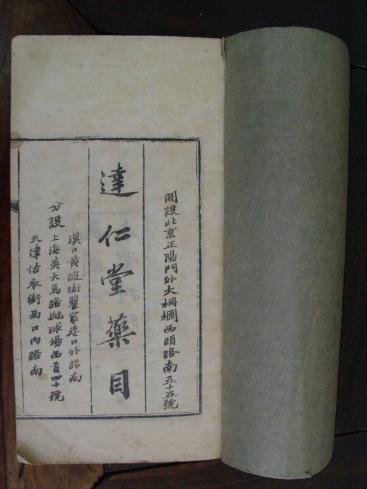 開設北京正陽門外大柵欄西頭路南五十五號
達仁堂藥目
漢口黃陂街翟家巷口外路南
分設上海英大馬路拋球場西首四十號
天津估衣街西口內路南